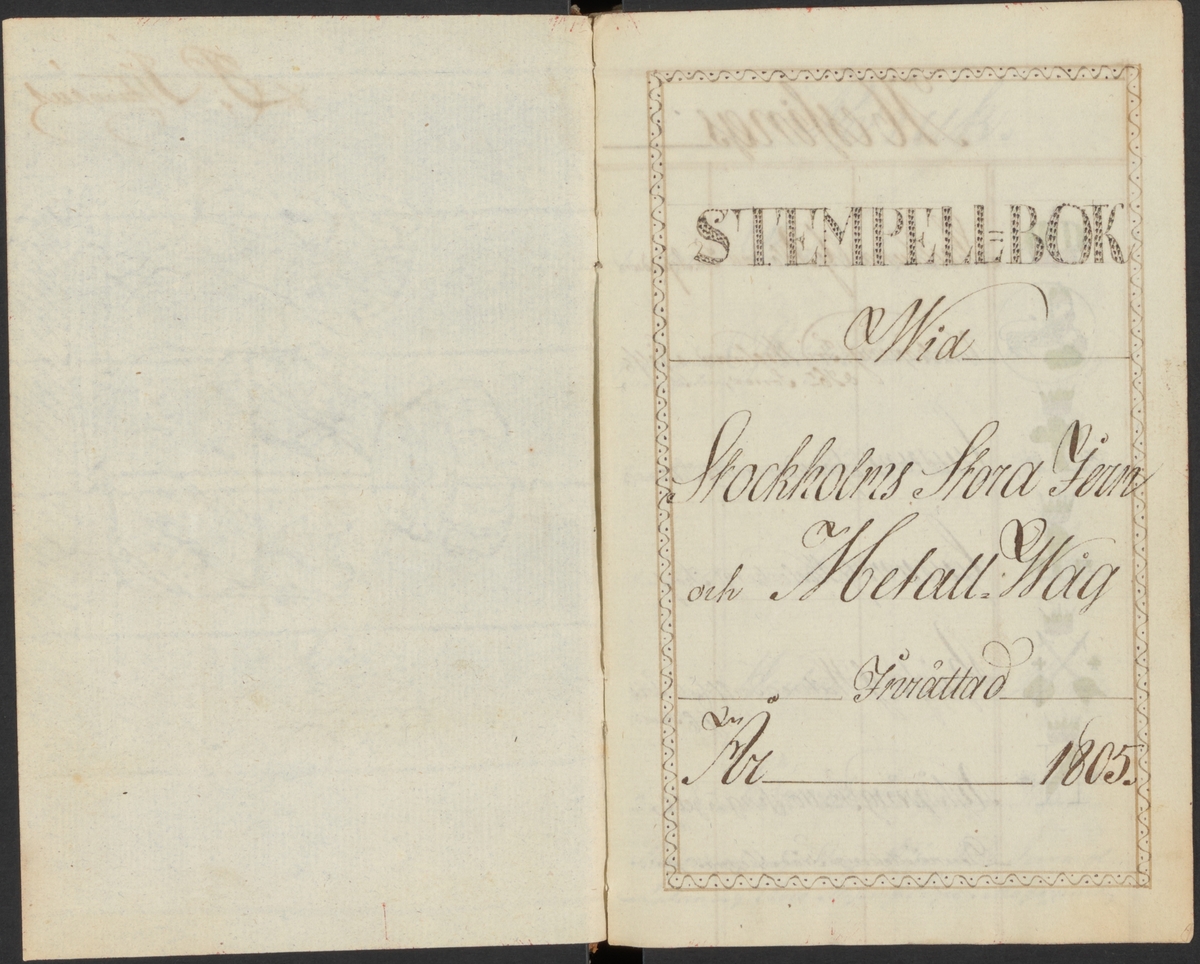 STEMPELL=BOK
Wid
Stockholms Stora Jern
och Metall-Wåg
Inrättad
År 1805.